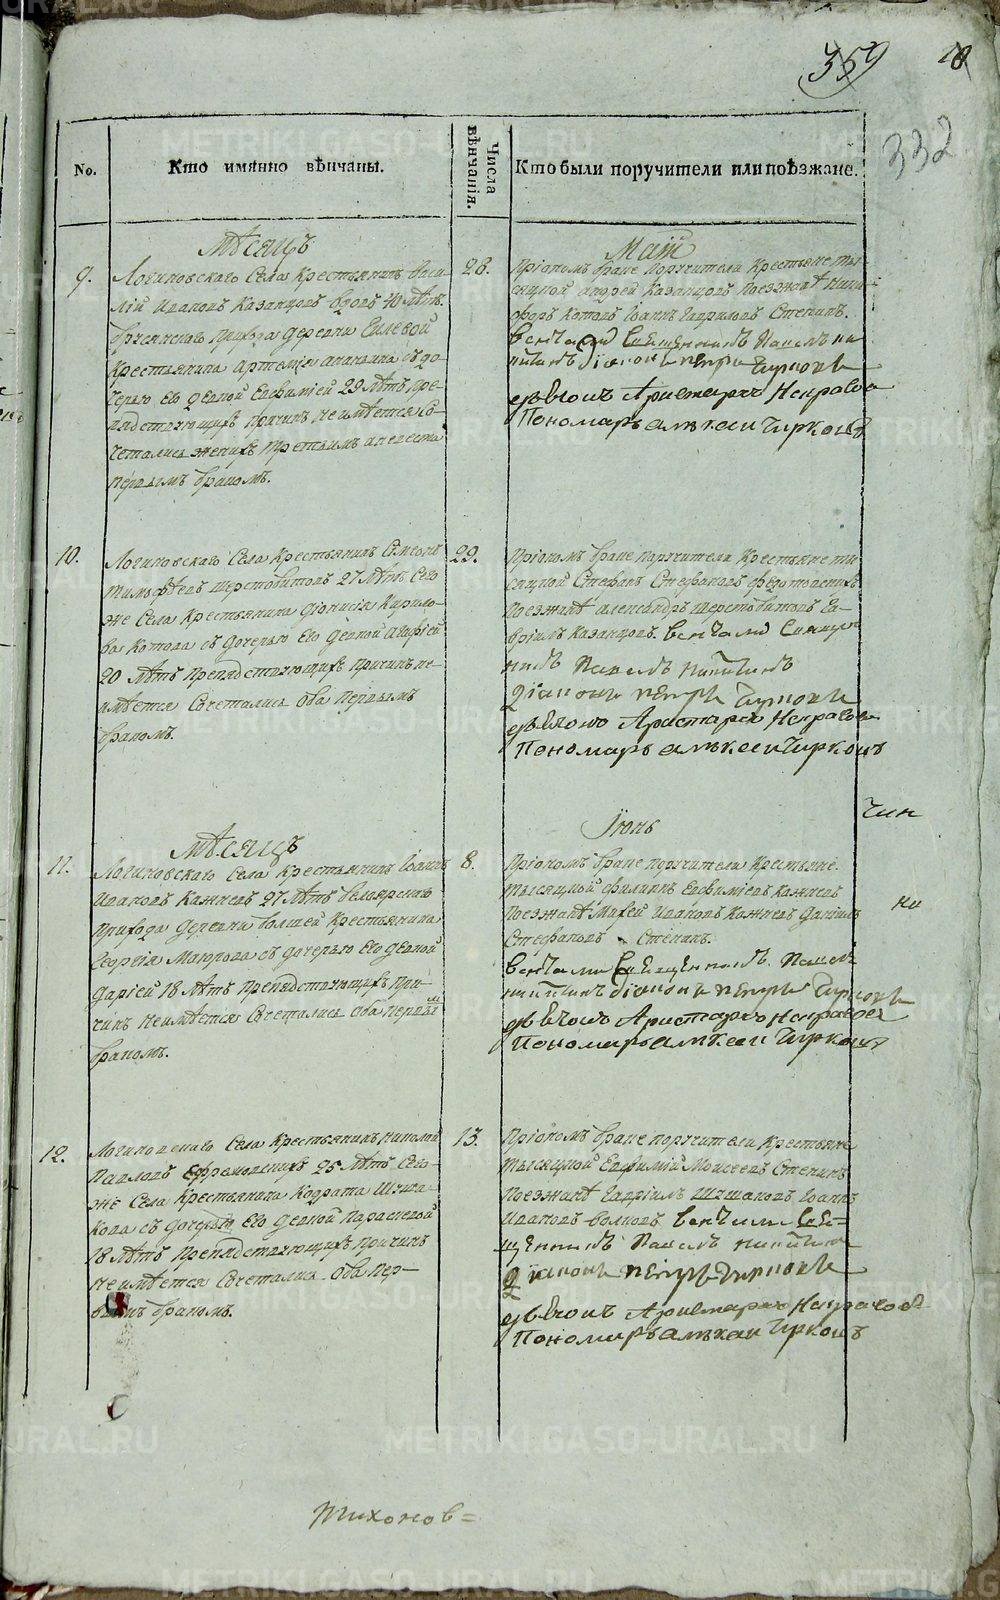 359
10
332
No.
Кто имянно вѣнчаны.
Числа вѣнчанія.
Кто были поручители или поѣзжане.
Мѣсяцъ
Маій
9.
Логиновскаго Села Крестьянинъ Васи-
лій Ивановъ Казанцовъ вдовъ 40 лѣтъ.
прихода деревни
Крестьянина Артемія съ до-
черью Его девкой Евфиміей 29 лѣтъ пре-
пядствующихъ причинъ неимѣется Со-
четались женихъ третьимъ а невеста
первымъ бракомъ.
28.
Пріономъ браке поручители Крестьяне ты-
сяцкой Андрей Казанцовъ Поезжанѣ Ники-
форъ Котовъ Іоаннъ Гавриловъ Степинъ.
венчалъ Священникъ Павелъ Ни-
китинъ діаконъ петръ Чирковъ
дьячокъ Аристархъ Некрасовъ
Пономарь алексеи Чирковъ
10.
Логиновскаго Села Крестьянинъ Симеонъ
Тимофѣевъ Шерстобитовъ 27 лѣтъ Сего
же Села Крестьянина Діонисія Кирило-
ва Котова съ дочерью Его девкой
20 лѣтъ Препядствующихъ Причинъ не-
имѣется Сочетались Оба Первымъ
бракомъ.
29.
Пріономъ браке поручители Крестьяне ты-
сяцкой Стефанъ Стефановъ
Поезжанѣ Александръ Шерстобитовъ Га-
вріилъ Казанцовъ. венчалъ Священ
никъ Павелъ Никитинъ
Діаконъ петръ Чирковъ
дьячокъ Аристархъ Некрасовъ
Пономарь алексеи Чирковъ
Мѣсяцъ
Іюнь
Чин
11.
Логиновскаго Села Крестьянинъ Іоаннъ
Ивановъ Кажневъ 27 лѣтъ Белоярскаго
Прихода Деревни Крестьянина
Георгія съ дочерью Его девкой
Даріей 18 лѣтъ Препядствующихъ При-
чинъ Неимѣется Сочетались Оба Первым
бракомъ.
8.
Пріономъ браке поручители Крестьяне
Тысяцкой Филипъ Евфиміевъ Кажневъ
Поезжанѣ Ивановъ Кажневъ Даніилъ
Стефановъ Степинъ.
ни
венчали Священникъ Павелъ
никитинъ діаконъ петръ Чирковъ
дьячокъ Аристархъ Некрасовъ
Пономарь алексеи Чирковъ
12.
Логиновскаго Села Крестьянинъ Николай
Павловъ Ефремовскихъ 25 лѣтъ Сего-
же Села Крестьянина Кодрата Шиша-
кова съ дочерью Его девкой Параскевой
18 лѣтъ Препядствующихъ Причинъ
Неимѣется Сочетались Оба Пер-
вымъ бракомъ.
13.
Пріономъ браке поручители Крестьяне
Тысяцкой Евфимій Моисеевъ Степинъ
Поезжанѣ Гавріилъ Шишаковъ Іоаннъ
Ивановъ Волковъ венчали Свя=
щенникъ Павелъ никитинъ
Діаконъ петръ Чирковъ
дьячокъ Аристархъ Некрасовъ
Пономарь алексеи Чирковъ
Тихонов=
METRIKI.GASO-URAL.RU